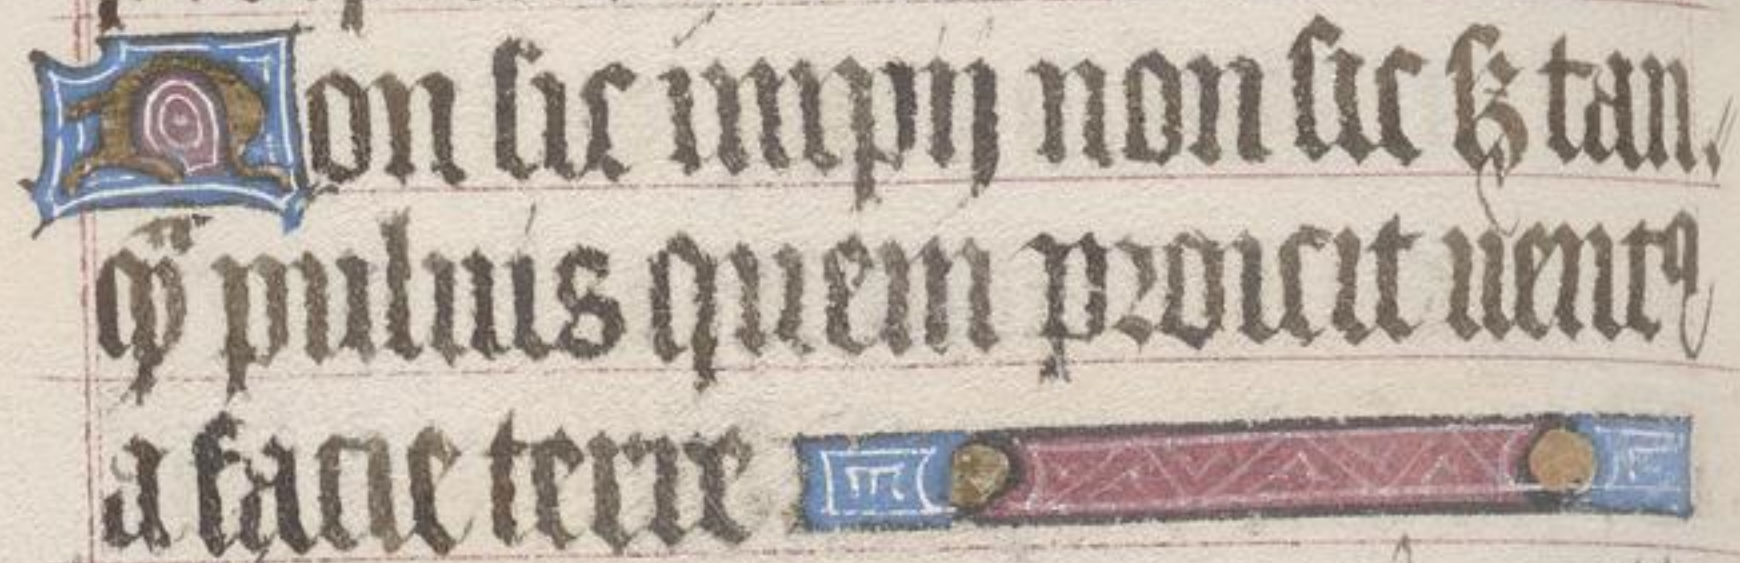 Non sic impij non sic sꝫ tan.
qͫ puluis quem proicit uentꝰ
a facie terre